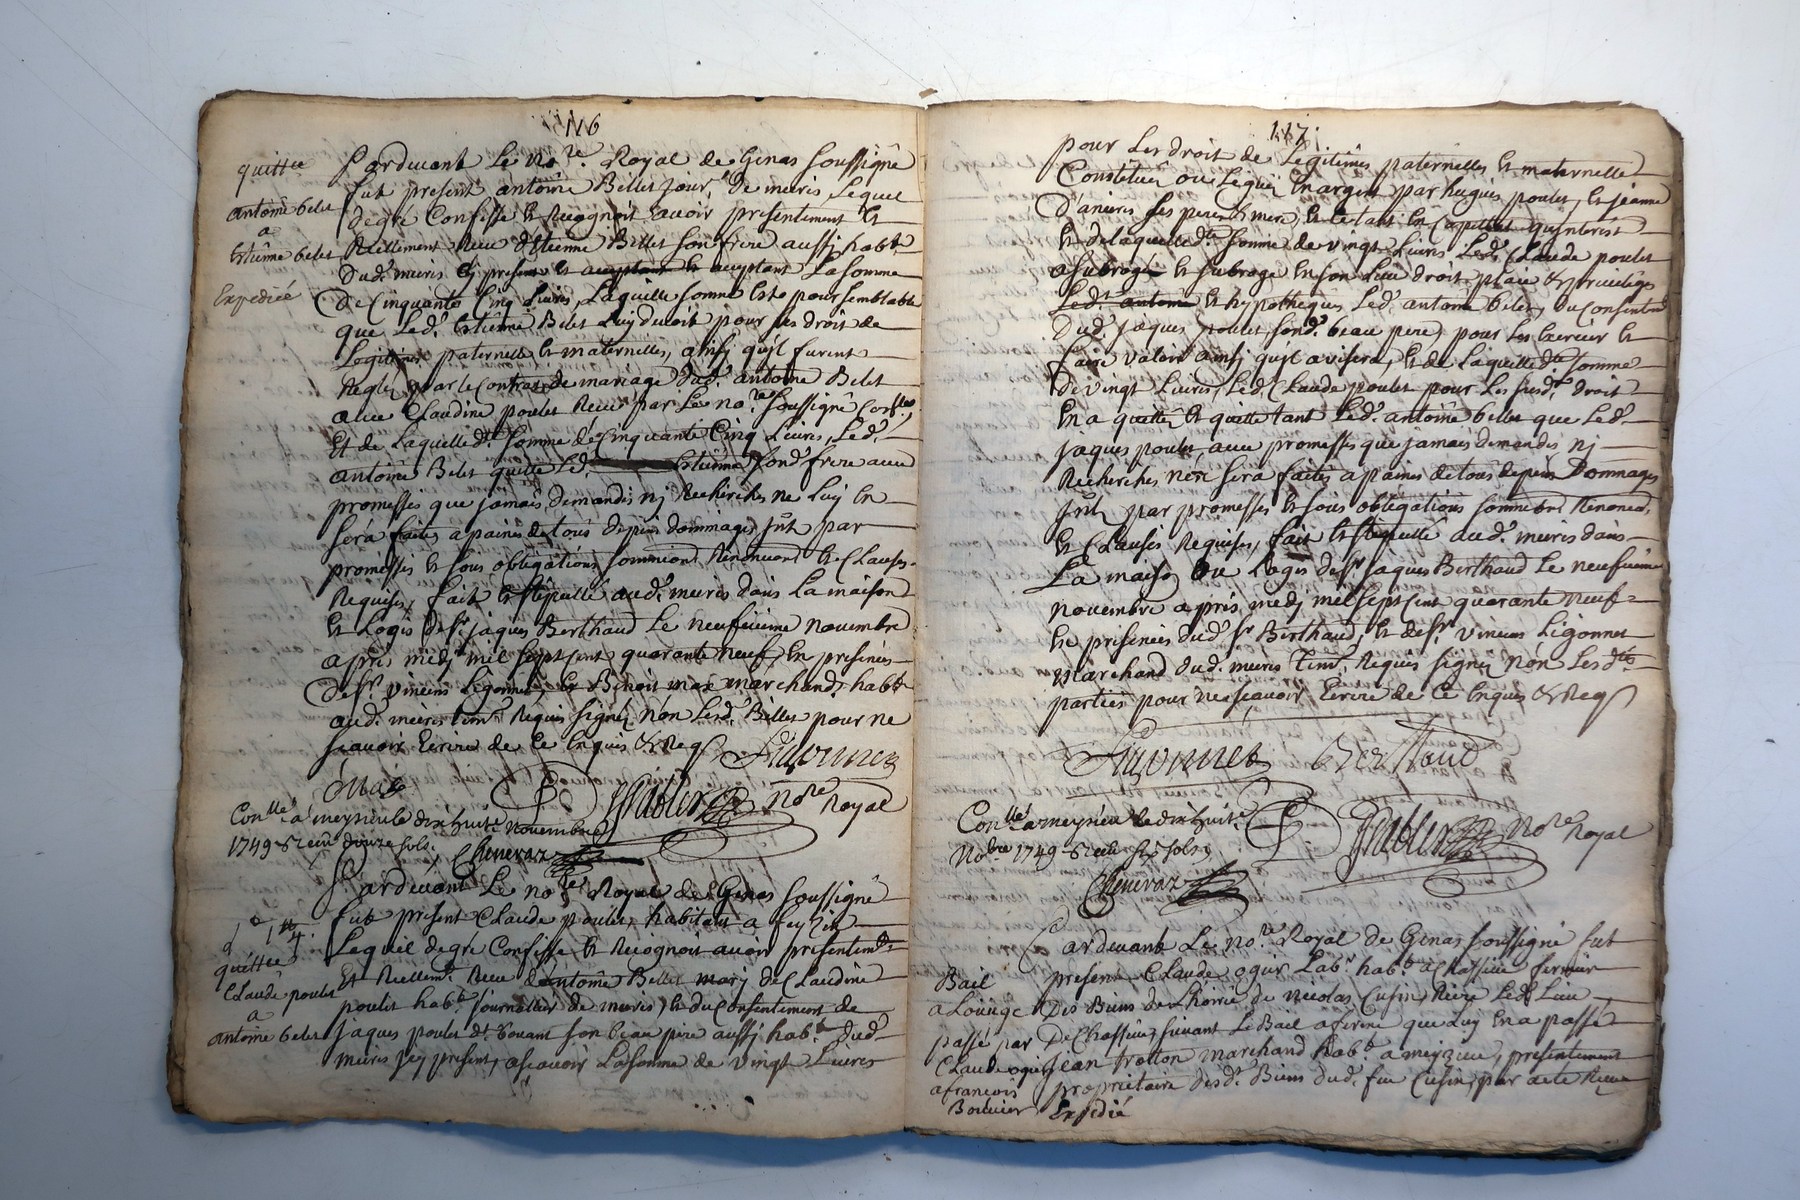 116
quittce
antoine belet
a
Estiene belet
Expediéé
Pardevant Le No.re Royal de Genas soussigné
fut present antoine Bellet Jour.r de meiris Lequel
degré Confesse et Recognoit avoir presentement et
Reellement Receu d'Etienne Billet son frere aussj habt
Dud. meiris cy present et acceptant La somme
De Cinquante Cinq Livres, Laquelle somme Est pour semblable
que Led. Estiene Belet Luy devoit pour ses droit de
Legitime paternelle et maternelles, ainsj quil furent
Reglés par le Contrat de mariage Dud. antoine Belet
avec Claudine poulet Receu par Le no.re soussigné
Et de Laquelle d.te somme de Cinquante Cinq Livres, Led.
antoine Belet quitte Led. Estiene sond. frere avec
promesses que jamais demandes nj Recherches ne Luy En
sera faites a paines de tous depens dommages, par
promesses et sous obligations Renonciaons et Clauses
Requises, fait et stipullé aud. meiris dans La maison
et Logis de Sr. jaques Berthaud Le neufvieme novembre
apres midj mil sept cent quarante neuf, En presences
De Sr. vincens Ligonnet, et Benoit max marchands habts
aud. meiris Requis signés non Lesd. Billet pour ne
scavoir Ecrire de Ce Enquis & Req.s
Ligonnet
max
No.re Royal
Con.llé a meyzieu le dix huit.e Novembre
1749 Receu douze sols.
Cheneraz
Pardevant Le no.re Royal de Genas soussigné
fut present Claude poulet, habitant a
Lequel degré Confesse et Recognoit avoir presentem.t
Et Reellem.t Receu d'antoine Billet marj de Claudine
poulet hab.t Journallier de meiris, et du Consentement de
Jaques poulet d.t son beau pere aussj hab.t Dud.
meiris jcy present, ascavoir La somme de vingt Livres
quittce
Claude poulet
a
antoine belet
117
pour Les droit de Legitimes paternelles et maternelle
Constitués ou Legués En argent par hugues poulet, et jeanne
D'aneires ses pere et mere, et ce tant En Capital quinterest
et de laquelle d.te somme de vingt Livres Led. Claude poulet
a subrogé et subroge En son Lieu droit place & privileges
Led. antoine et hypotheques Led. antoine belet, du Consentem.t
Dud. jaques poulet sond. beau pere, pour Les Exercer et
faire valoir ainsj quil avisera, et de Laquelle d.te somme
de vingt Livres, Led. Claude poulet pour Les susd. droit
En a quitté et quitte tant Led. antoine belet que Led.
jaques poulet, avec promesses que jamais demandes nj
Recherches n'en sera faites a paines de tous depens Dommages
par promesses et sous obligations
et Clauses Requises, fait et stipullé aud. meiris dans
La maison ou Logis de Sr. jaques Berthaud Le neufvieme
novembre apres midj mil sept cent quarante neuf
En presences dud. Sr Berthaud, et de Sr. vincens Ligonnet
Marchand dud. meiris Requis signés non Les d.tes
parties pour ne scavoir Ecrire de Ce Enquis & Req.s
Ligonnet Berthaud
Con.llé a meyzieu le dix huit.e
No.bre 1749 Receu six sols
No.re Royal
Cheneraz
Pardevant Le No.re Royal de Genas soussigné fut
present Claude ogier Lab.r hab.t a Chassieu fermier
Des Biens de Lhoirie de Nicolas Cusin, Riere Led. Lieu
De Chassieu, suivant Le Bail a ferme que Luy En a passé
Jean trollon marchand hab.t a meyzieu, presentement
proprietaire desd. Biens dud. feu Cusin, par acte Receu
Bail
a Louage
passé par
Claude ogier
a francois
Bouvier
Expedié